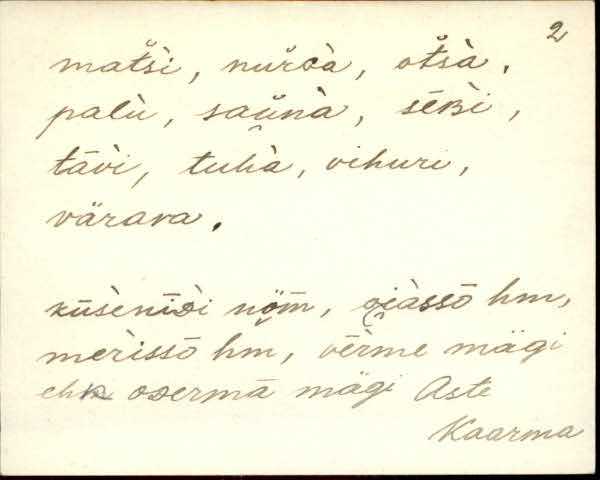 2
mat̆s̀i, nur̆oà, ot̆sà,
palù, saŭnà, sēʙ̀i,
tāvi, tuhà, vihuri,
värava.
kūsènīᴅi nȫm, ojàssō hm,
merìssō hm, vērme mägi
ehk oᴅermā mägi Aste
Kaarma